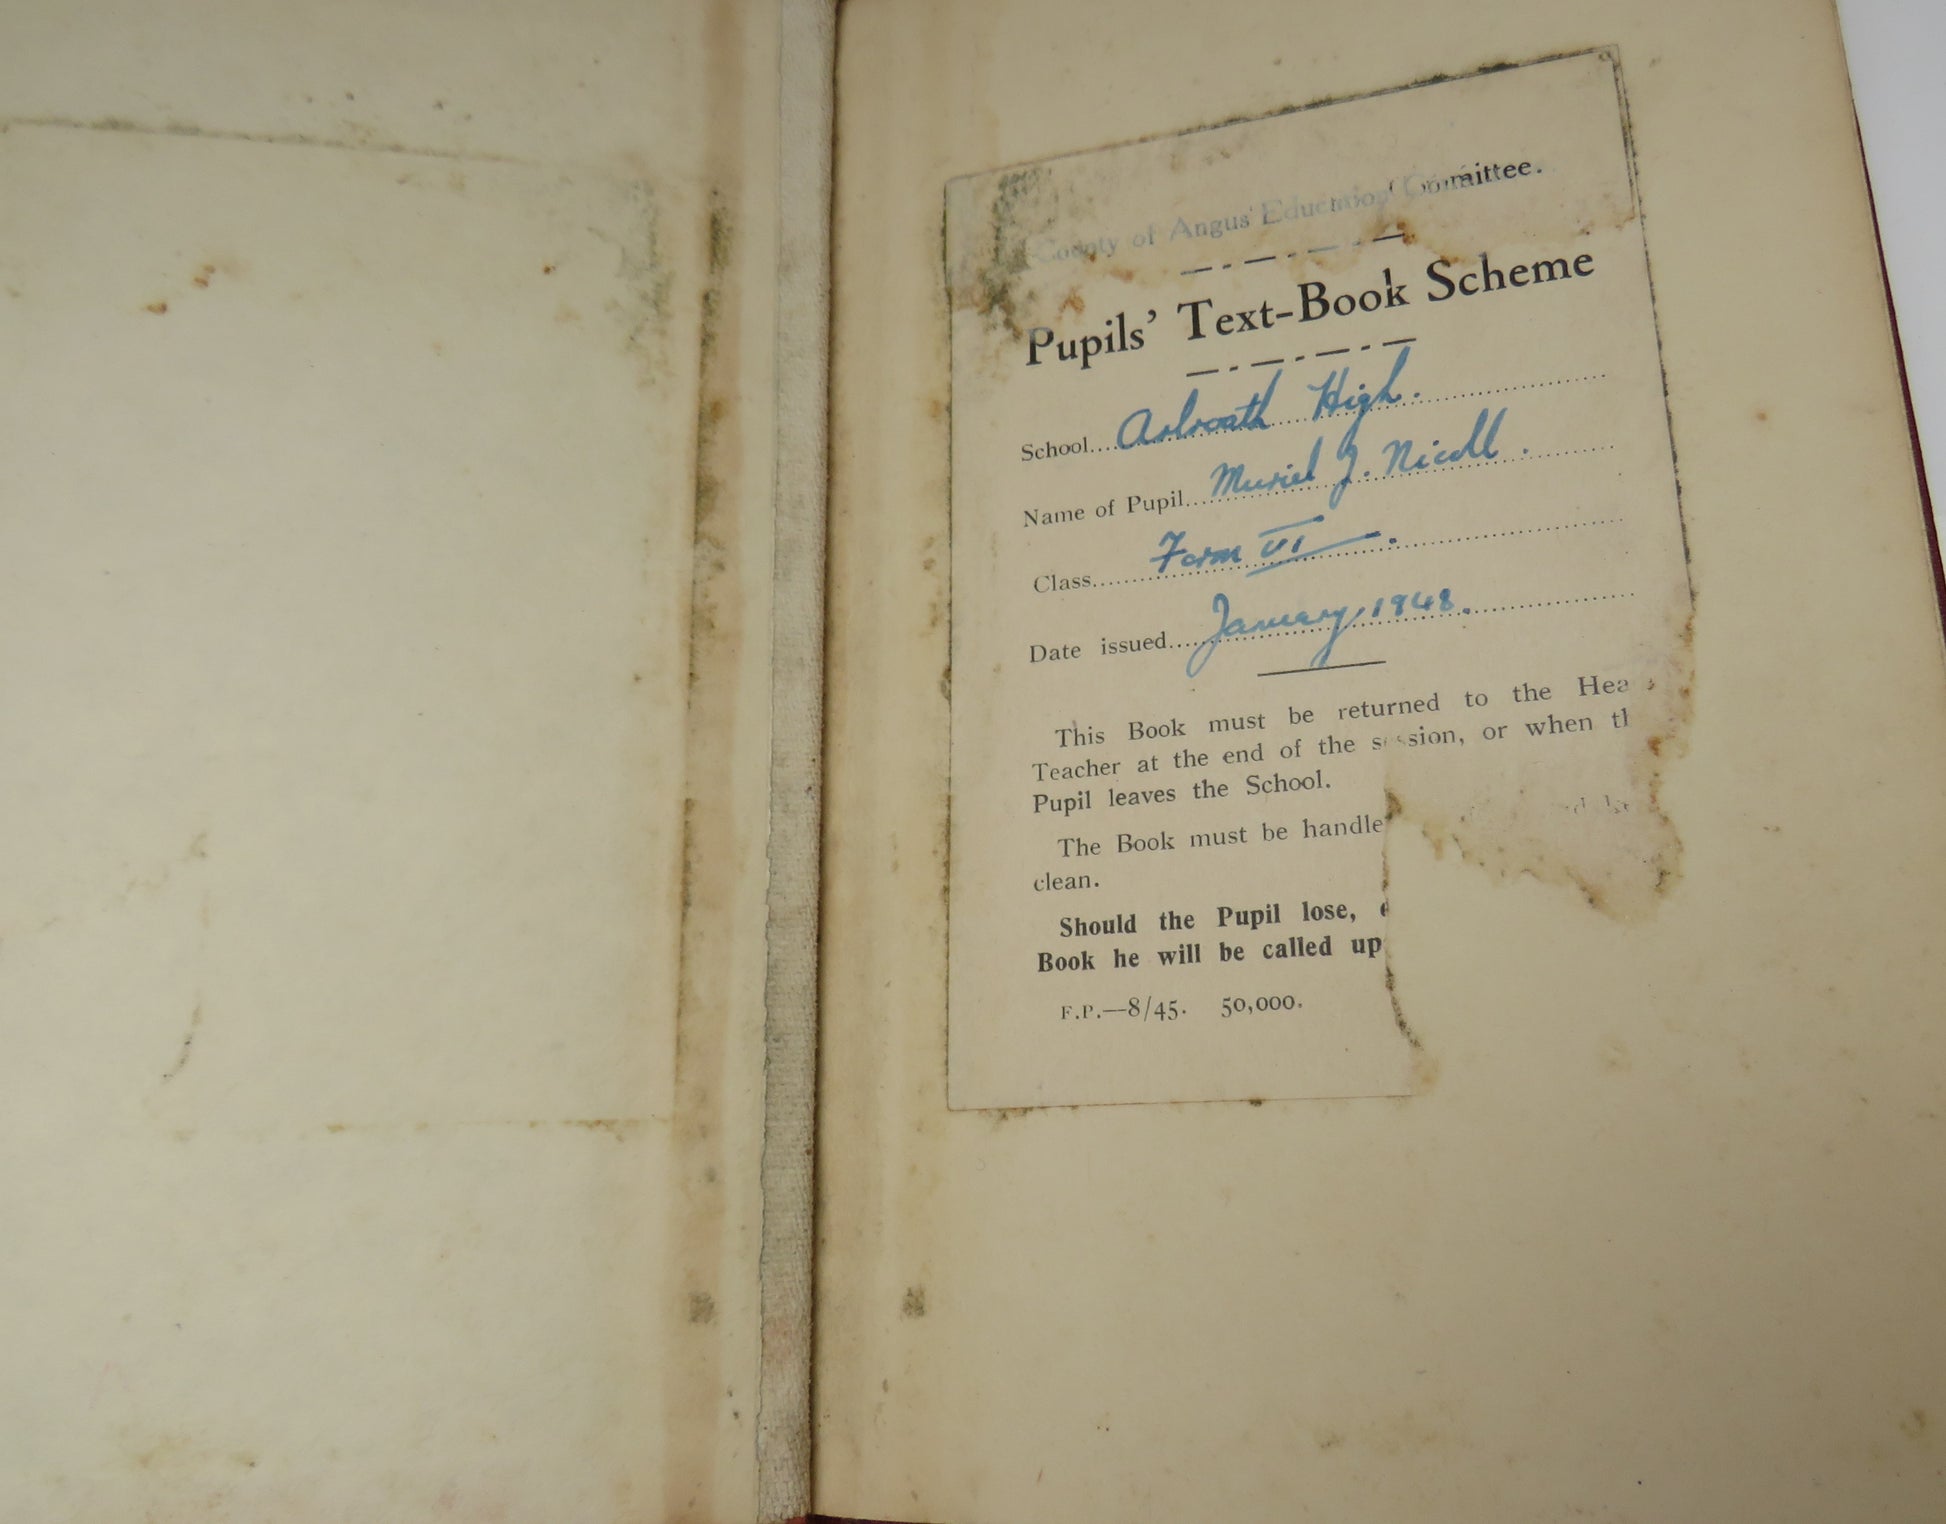 County of Angus Education Committee.
Pupils' Text-Book Scheme
School.... Arbroath High.
Name of Pupil... Muriel J. Nicoll.
Class..... Form VI.
Date issued.... January, 1948.
This Book must be returned to the Hea
Teacher at the end of the session, or when th
Pupil leaves the School.
The Book must be handle
clean.
Should the Pupil lose,
Book he will be called up
F.P.—8/45. 50,000.